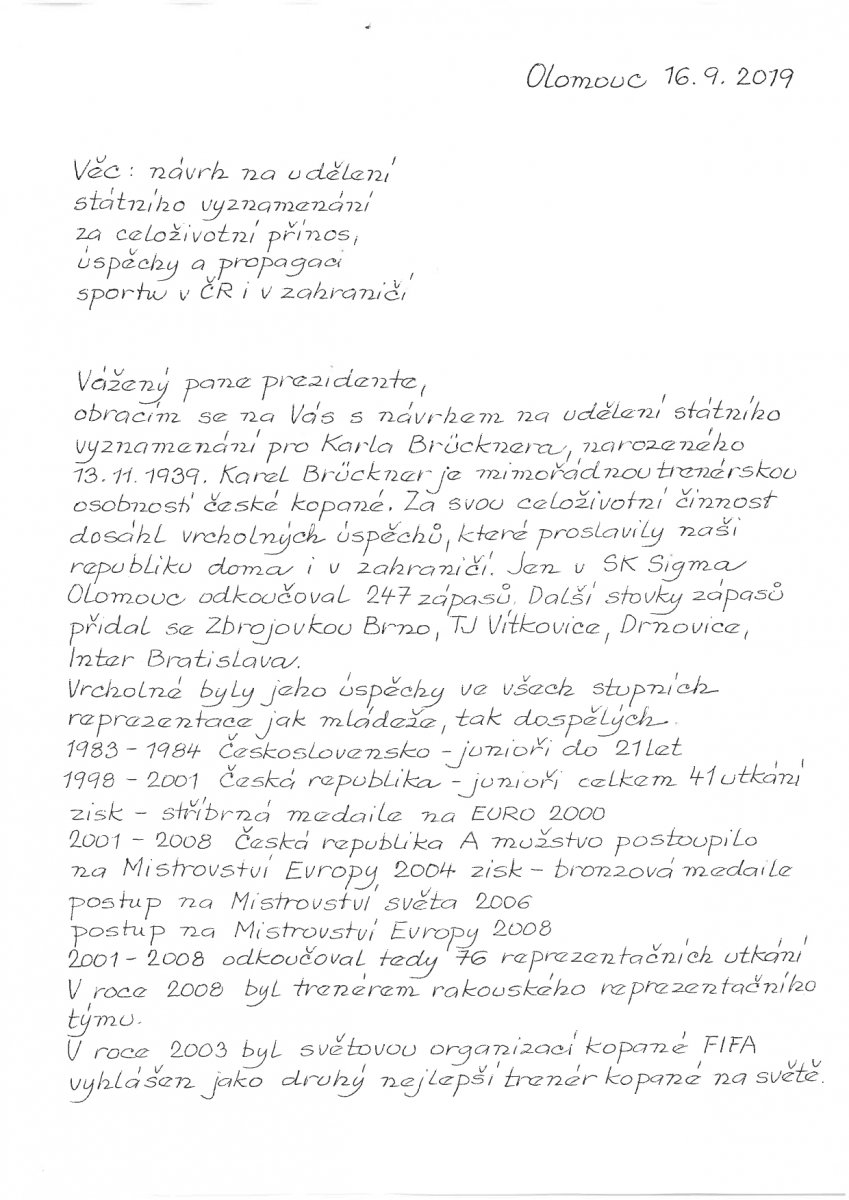 Olomouc 16.9.2019
Věc: návrh na udělení
státního vyznamenání
za celoživotní přínos,
úspěchy a propagaci
sportu v ČR i v zahraničí
Vážený pane prezidente,
obracím se na Vás s návrhem na udělení státního
vyznamenání pro Karla Brücknera, narozeného
13.11.1939. Karel Brückner je mimořádnou trenérskou
osobností české kopané. Za svou celoživotní činnost
dosáhl vrcholných úspěchů, které proslavily naši
republiku doma i v zahraničí. Jen v SK Sigma
Olomouc odkoučoval 247 zápasů. Další stovky zápasů
přidal se Zbrojovkou Brno, TJ Vítkovice, Drnovice,
Inter Bratislava.
Vrcholné byly jeho úspěchy ve všech stupních
reprezentace jak mládeže, tak dospělých.
1983 - 1984 Československo - junioři do 21 let
1998 - 2001 Česká republika - junioři celkem 41 utkání
zisk - stříbrná medaile na EURO 2000
2001 - 2008 Česká republika A mužstvo postoupilo
na Mistrovství Evropy 2004 zisk - bronzová medaile
postup na Mistrovství světa 2006
postup na Mistrovství Evropy 2008
2001 - 2008 odkoučoval tedy 76 reprezentačních utkání
V roce 2008 byl trenérem rakouského reprezentačního
týmu.
V roce 2003 byl světovou organizací kopané FIFA
vyhlášen jako druhý nejlepší trenér kopané na světě.